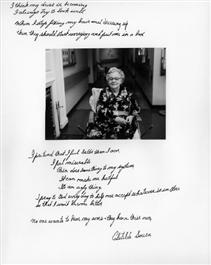 I think my dress is becoming
I always try to look well
When I stop fixing my hair and dressing up
then they should start worrying and put me in a box
I pretend that I feel better than I am
I feel miserable
this does something to my system
It can make me hateful
It's an ugly thing
I pray to God every day to help me accept whatever is in store
so that I won't become bitter
no one wants to hear my woes - they have their own